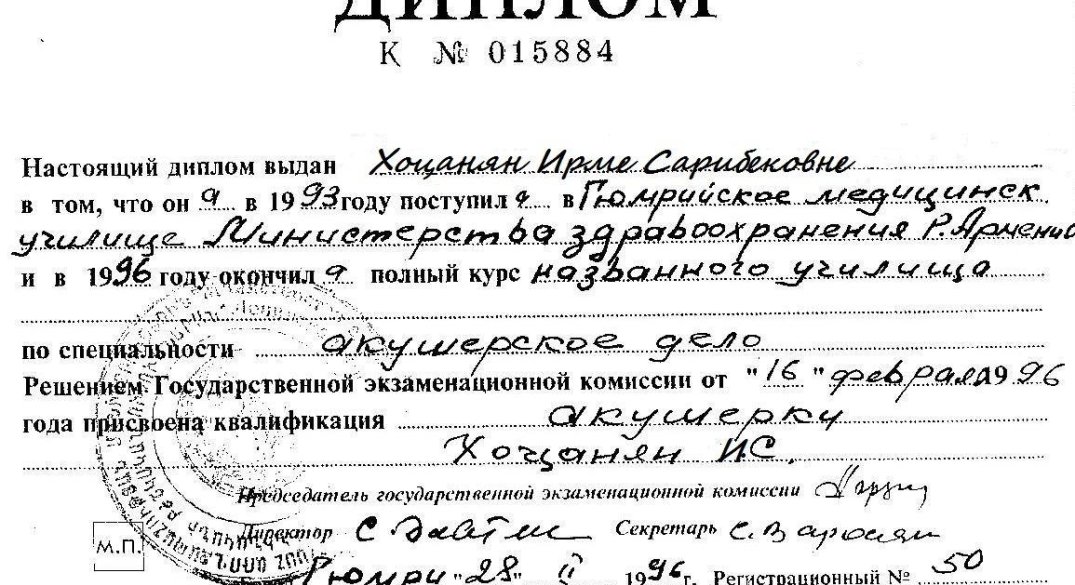 ДИПЛОМ
К № 015884
Настоящий диплом выдан Хоцанян Ирме Сарибековне
в том, что он а в 1993 году поступил а в Гюмрийское медицинск
училище Министерства здравоохранения Р. Армении
и в 1996 году окончил а полный курс названного училища
по специальности акушерское дело
Решением Государственной экзаменационной комиссии от "16" февраля 1996
года присвоена квалификация акушерки
Хоцанян И С.
Председатель государственной экзаменационной комиссии
Директор С Секретарь С.
М.П.
Гюмри "28" II 1996 г. Регистрационный № 50